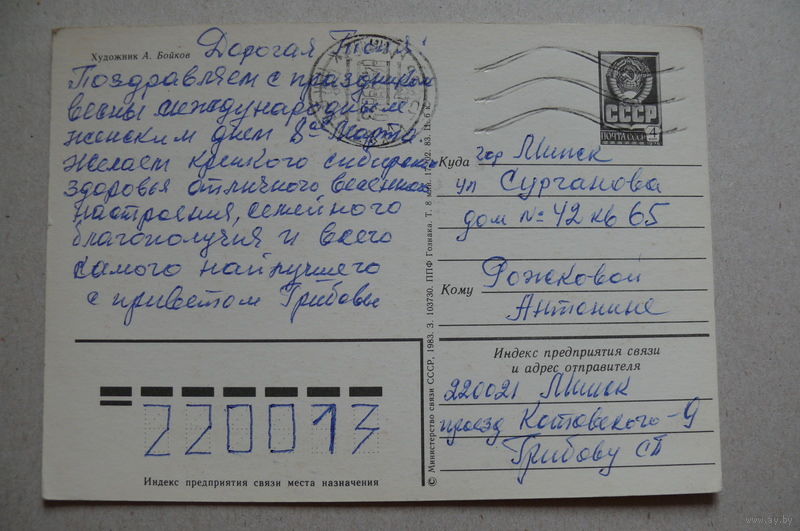 Художник А. Бойков
Дорогая Тоня!
Поздравляем с праздником
весны международным
женским днем 8ое Марта.
Желаем крепкого сибирского
здоровья отличного весеннего
настроения, семейного
благополучия и всего
самого наилучшего
с приветом Грибовы
СССР
ПОЧТА СССР 4
Куда гор Минск
ул Сурганова
дом № 42 кв 65
Кому Рожковой
Антонине
Индекс предприятия связи
и адрес отправителя
220021 Минск
проезд Котовского-9
Грибову СП
220013
Индекс предприятия связи места назначения
© Министерство связи СССР, 1983. З. 103730. ППФ Гознака. Т. 8 млн.
www.ay.by